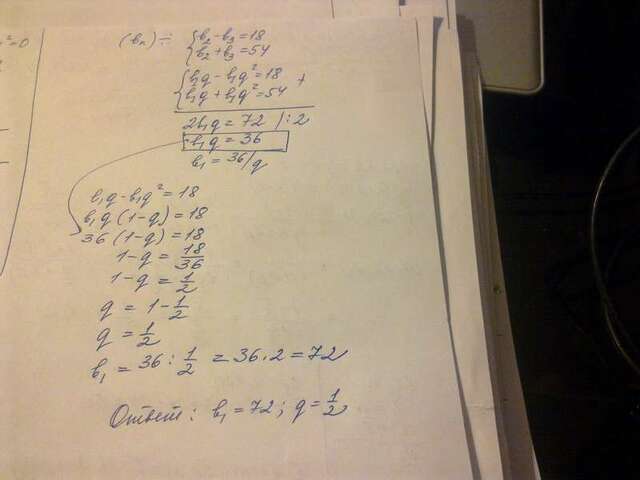 ²=0
(bₙ) ÷ { b₂ - b₃ = 18
b₂ + b₃ = 54
{ b₁q - b₁q² = 18 +
b₁q + b₁q² = 54
2b₁q = 72 /:2
b₁q = 36
b₁ = 36/q
b₁q - b₁q² = 18
b₁q (1-q) = 18
36 (1-q) = 18
1-q = 18/36
1-q = 1/2
q = 1 - 1/2
q = 1/2
b₁ = 36 : 1/2 = 36 · 2 = 72
Ответ: b₁ = 72; q = 1/2